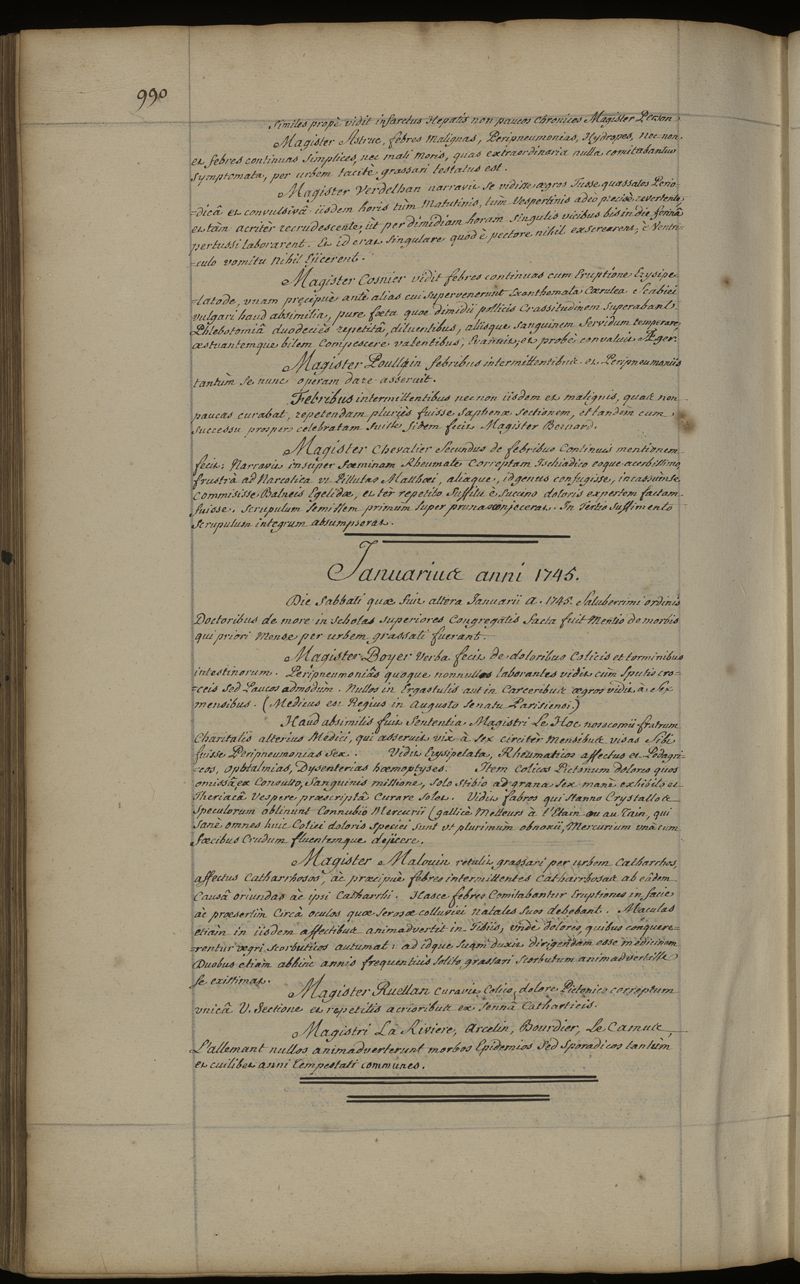 990
Similes propè vidit infarctus Hepatis non paucos Chronicos Magister Person.
Magister Astruc, febres malignas, Peripneumonias, Hydropes, nec non
et febres continuas simplices, nec mali moris, quas extraordinaria nulla comitabantur
Symptomata, per urbem tacitè grassari testatus est.
Magister Verdelhan narravit se vidisse ægros Tusse quassatos Perio-
=dicâ et convulsivâ iisdem horis tum Matutinis, tum Vespertinis adeo præcisè revertente,
et tàm acritèr recrudescente, ut per dimidiam horam singulis vicibus bis in die ferinâ
pertussi laborarent. Et id erat singulare quòd è pectore nihil exscrearent, è Ventri-
=culo vomitu nihil ejicerent.
Magister Cosnier vidit febres continuas cum Eruptione Erysipe-
=latode, unam præcipuè antè alias cui supervenerunt Exanthemata Cærulea Scabiei
vulgari haud absimilia, pure fæta quæ dimidii pollicis Crassitudinem superabant.
Phlebotomiâ duodeciès repetitâ, diluentibus, aliisque sanguinem fervidum temperare,
æstuantemque bilem Compescere valentibus, evanuit, et probè convaluit Æger.
Magister Poullain febribus intermittentibus et Peripneumoniis
tantùm se nunc operam dare asseruit.
Febribus intermittentibus nec non iisdem et malignis, quas non
paucas curabat, repetendam pluriès fuisse Saphenæ Sectionem, et tandem cum
Successu prospero celebratam fuisse fidem fecit Magister Bernard.
Magister Chevalier Secundus de febribus Continuis mentionem
fecit; Narravit insuper fœminam Rheumate Correptam Ischiadico eoque acerbissimo
frustrà ad Narcotica ut Pillulas Matthœi, aliaque, id genus confugisse, incassum se
Commisisse Balneis Egelidæ, et ter repetito Suffitu è Succino doloris expertem factam
fuisse. Scrupulum semissem primum super prunas conjecerat. In tertio suffimento
Scrupulum integrum absumpserat.
Januarius anni 1745.
Die Sabbati quæ fuit altera Januarii a. 1745. Saluberrimi ordinis
Doctoribus de more in Scholas Superiores Congregatis facta fuit Mentio de morbis
qui priori Mense per urbem grassati fuerant.
Magister Boyer Verba fecit de doloribus Colicis et torminibus
intestinorum. Peripneumoniâ quoque nonnullos laborantes vidit cum Sputis cro-
=ceis sed Paucos admodum. Nullos in Ergastulis aut in Carceribus ægros vidit à sex
mensibus. (Medicus est Regius in Augusto Senatu Parisiensi.)
Haud absimilis fuit Sententia Magistri Le Hoc nosocomii fratrum
Charitatis alterius Medici, qui asseruit vix à Sex circiter Mensibus visas sibi
fuisse Peripneumonias Sex. Vidit Erysipelata, Rheumaticos affectus et Podagri-
=cos, Ophtalmias, Dysenterias hœmoptyses. Item Colicos Pictonum dolores quos
omissâ, ex Consulto, Sanguinis missione, Solo Stibio ad grana Sex manè exhibito et
Theriacâ Vespere præscriptâ Curare solet. Vidit fabros qui Stanno Crystallos
Speculorum oblinunt Connubio Mercurii (gallicè Metteurs à l'Etain ou au Tain, qui
Sanè omnes huic Colici doloris Speciei sunt ut plurimùm obnoxii, Mercurium unà cum
Fœcibus Crudum fluentemque dejicere.
Magister Malouin retulit grassari per urbem Catharrhos,
affectus Catharrhosos, ac præcipuè febres intermittentes Catharrhosas ab eâdem
Causâ oriundas ac ipsi Catharrhi. Hasce febres Comitabantur Eruptiones in facie
ac præsertim Circà oculos quæ Serosæ colluviei natales Suos debebant. Maculas
etiam in iisdem affectibus animadvertit in Tibiis, unde dolores quibus conquere-
=rentur ægri Scorbuticos autumat; ad idque sequi duxit dirigendam esse medicinam.
Duobus etiam abhinc annis frequentiùs Solito grassari Scorbutum animadvertisse
Se existimat.
Magister Ruellan curavit Colico dolore Pictonico correptum
unicâ V. Sectione et repetitis acrioribus ex Sennâ Catharticis.
Magistri La Riviere, Arcelin, Bourdier, Le Camus,
L'allemant nullos animadverterunt morbos Epidemios Sed Sporadicos tantùm
et cuilibet anni tempestati communes.